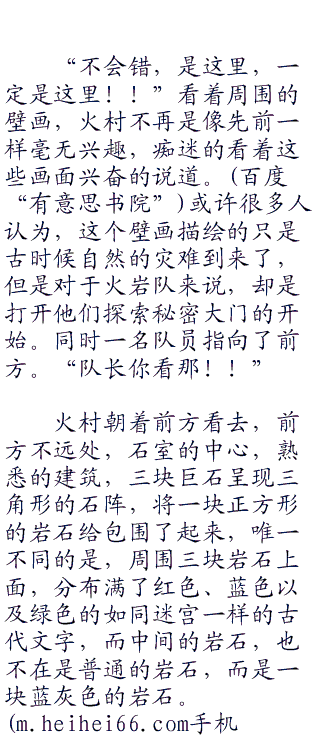 “不会错，是这里，一
定是这里！！”看着周围的
壁画，火村不再是像先前一
样毫无兴趣，痴迷的看着这
些画面兴奋的说道。(百度
“有意思书院”)或许很多人
认为，这个壁画描绘的只是
古时候自然的灾难到来了，
但是对于火岩队来说，却是
打开他们探索秘密大门的开
始。同时一名队员指向了前
方。“队长你看那！！”
火村朝着前方看去，前
方不远处，石室的中心，熟
悉的建筑，三块巨石呈现三
角形的石阵，将一块正方形
的岩石给包围了起来，唯一
不同的是，周围三块岩石上
面，分布满了红色、蓝色以
及绿色的如同迷宫一样的古
代文字，而中间的岩石，也
不在是普通的岩石，而是一
块蓝灰色的岩石。
(m.heihei66.com手机